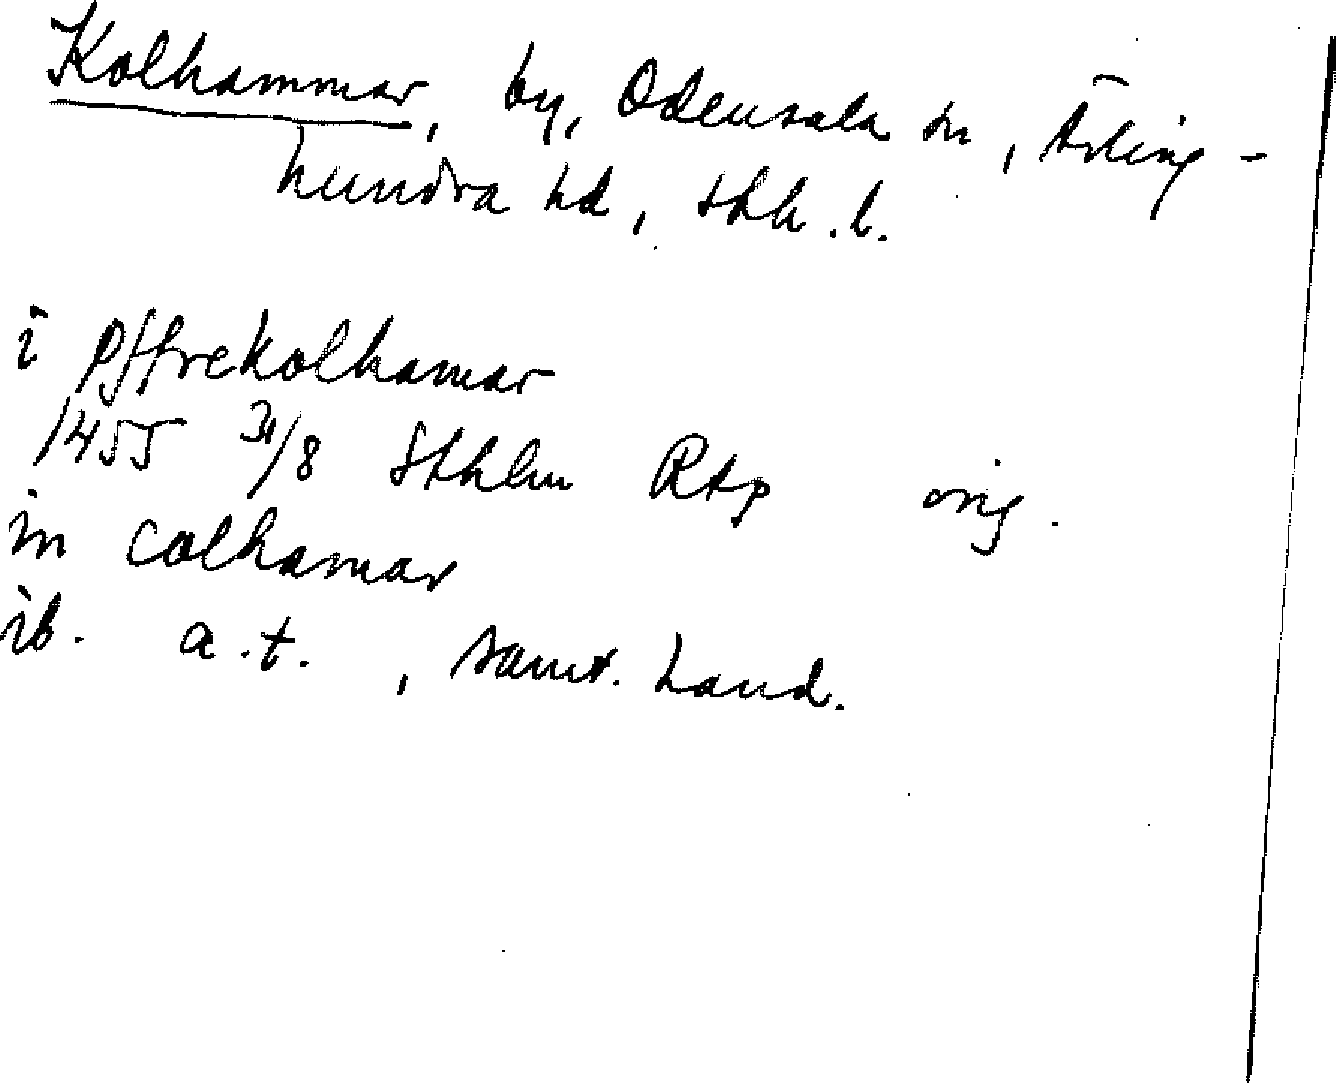 Kolhammar, by, Odensala sn, Ärling-
hundra hd, Sthlm. l.
i pffrekolhamar
1455 31/8 Sthlm RAp orig.
in colhamar
ib. a.t., samt. hand.